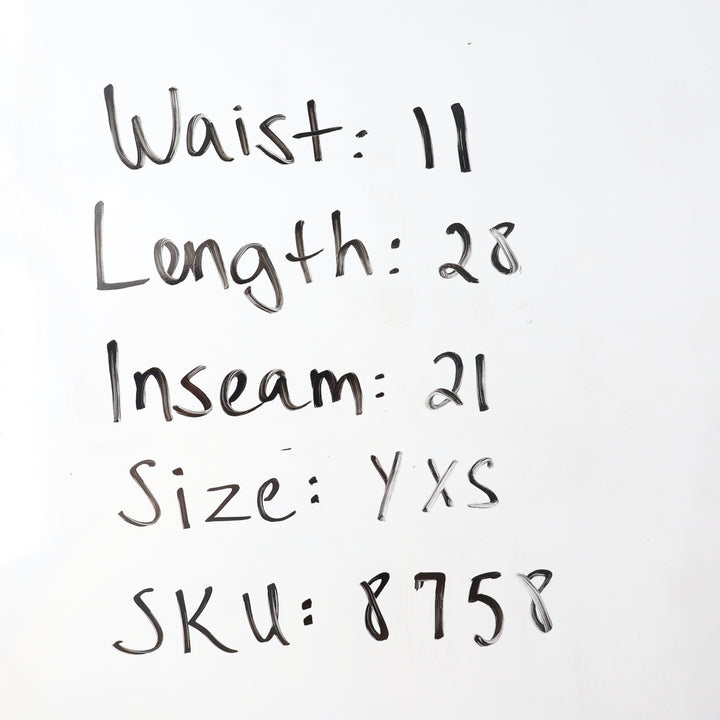 Waist: 11
Length: 28
Inseam: 21
Size: YXS
SKU: 8758